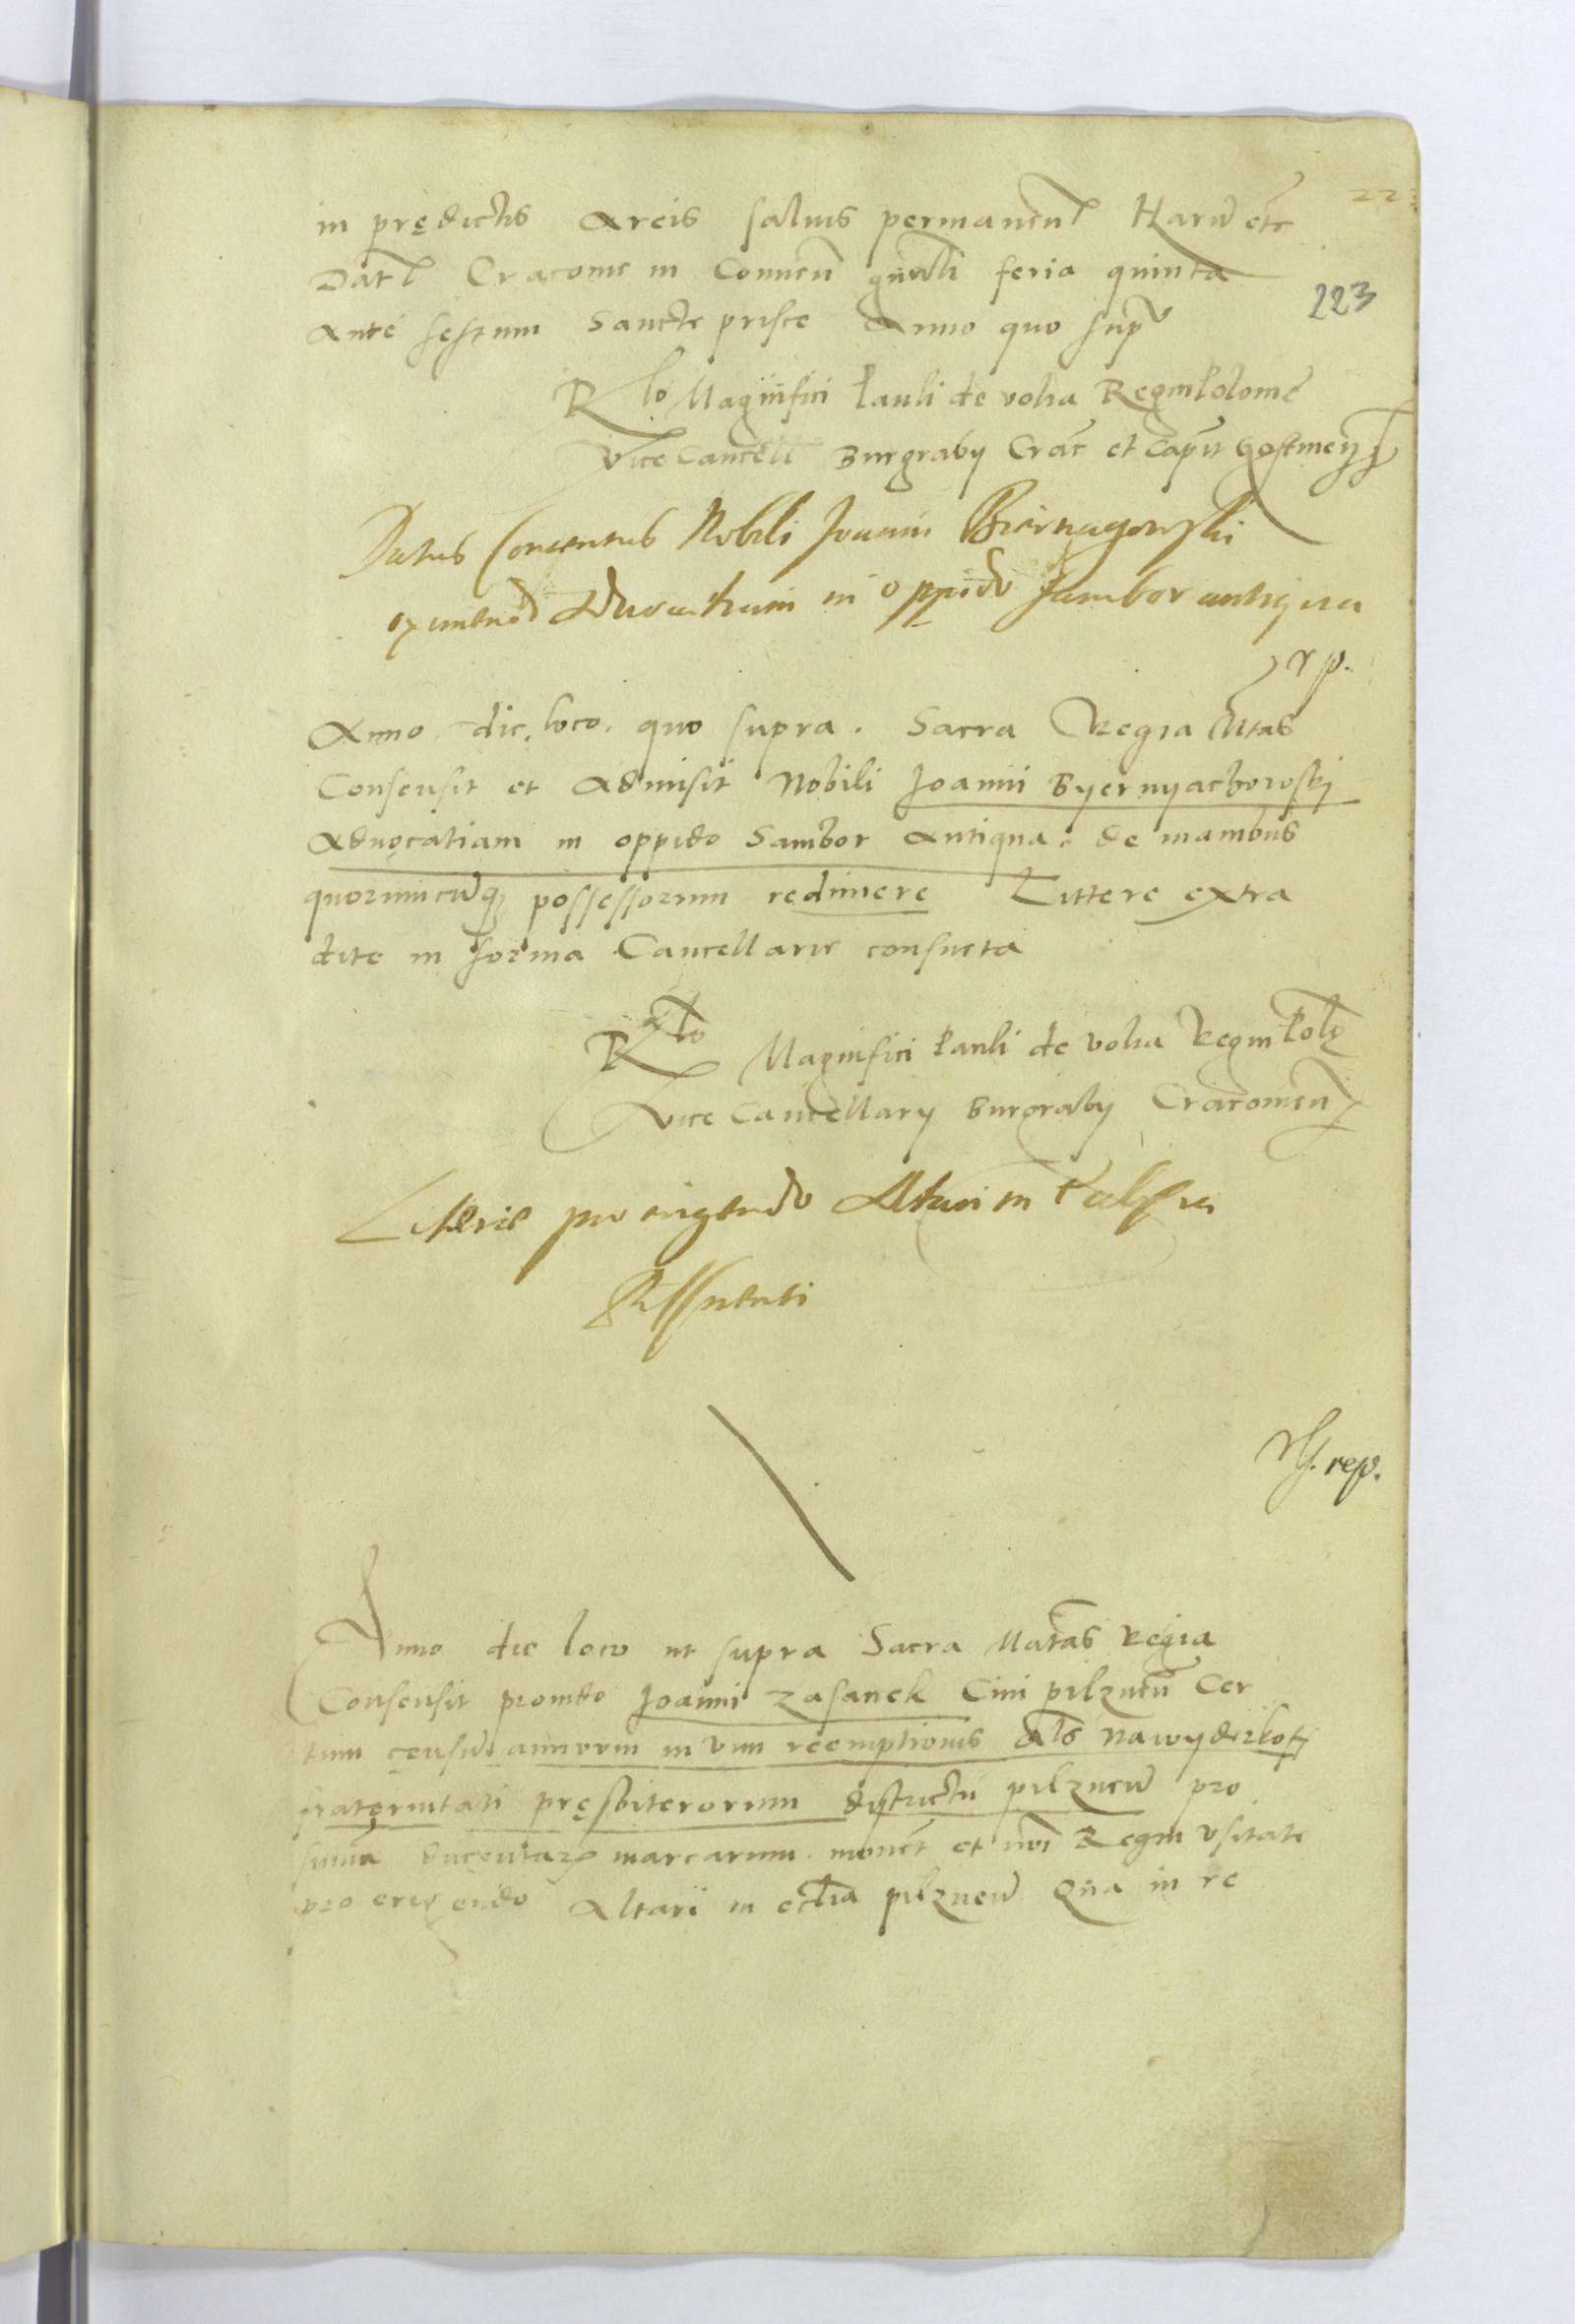 223
in prędictis Arcis saluis permanent Harum etc
Dat Cracovie in Conuen gnrali feria quinta
Ante festum Sancte prisce Anno quo sup
Rlo Magnifici Pauli de volia Regni Polonie
Vice Cancell Burgraby Crac et Capit Gostinen
Datus Consensus Nobili Joanni Biernagowski
eximend Aduocatiam in oppido Sambor antiqua
rp.
Anno die, loco, quo supra. Sacra Regia Mtas
Consensit et Admisit Nobili Joanni Byernyachowsky
Aduocatiam in oppido Sambor Antiqua: de manibus
quorumcumq possessorum redimere Littere extra
dite in forma Cancellarie consueta
Rlto Magnifici Pauli de volia Regni Polę
Vice Cancellary Burgraby Cracouien
Literae pro erigendo Altari in
rep.
Anno die loco ut supra Sacra Matas Regia
Consensit prouido Joanni Zasanek Ciui pilznen Cer
tum censum annuum in vim reemptionis als nawyderkoff
fraternitati pręsbiterorum districtu pilznen pro
suma ducentarum marcarum monet et nui Regni vsitate
pro erigendo Altari in eclia pilznen Qua in re